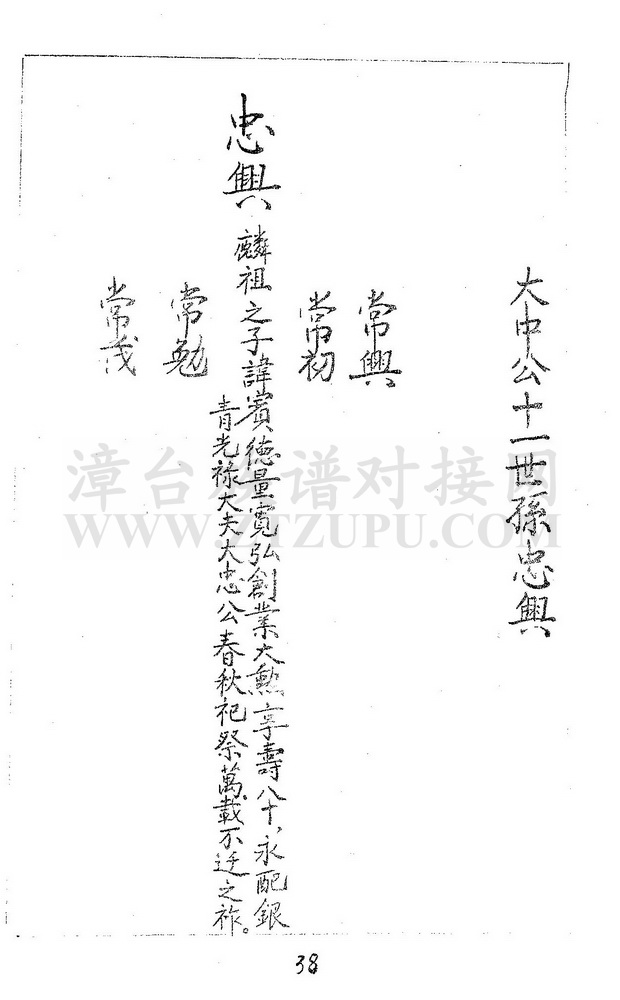 大中公十一世孫忠興
常興
常初
忠興
麟祖之子諱賓德量寬弘創業大勲享壽八十，永配銀
青光祿大夫大忠公春秋祀祭萬載不迁之祚。
常勉
常茂
漳台族谱对接网
WWW.ZTZUPU.COM
38